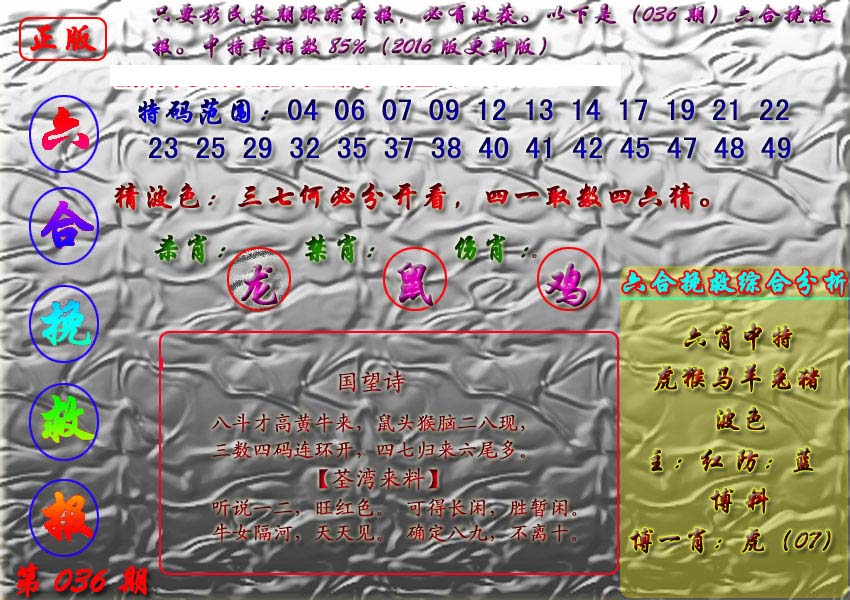 正版
只要彩民长期跟踪本报，必有收获。以下是（036期）六合挽救
报。中特率指数85%（2016版更新版）
特码范围：04 06 07 09 12 13 14 17 19 21 22
23 25 29 32 35 37 38 40 41 42 45 47 48 49
猜波色：三七何必分开看，四一取数四六猜。
杀肖：龙 禁肖：鼠 伤肖：鸡
六合挽救报
第036期
国望诗
八斗才高黄牛来，鼠头猴脑二八现，
三数四码连环开，四七归来六尾多。
【荃湾来料】
听说一二，旺红色。 可得长闲，胜暂闲。
牛女隔河，天天见。 确定八九，不离十。
六合挽救综合分析
六肖中特
虎猴马羊兔猪
波色
主：红防：蓝
博料
博一肖：虎（07）